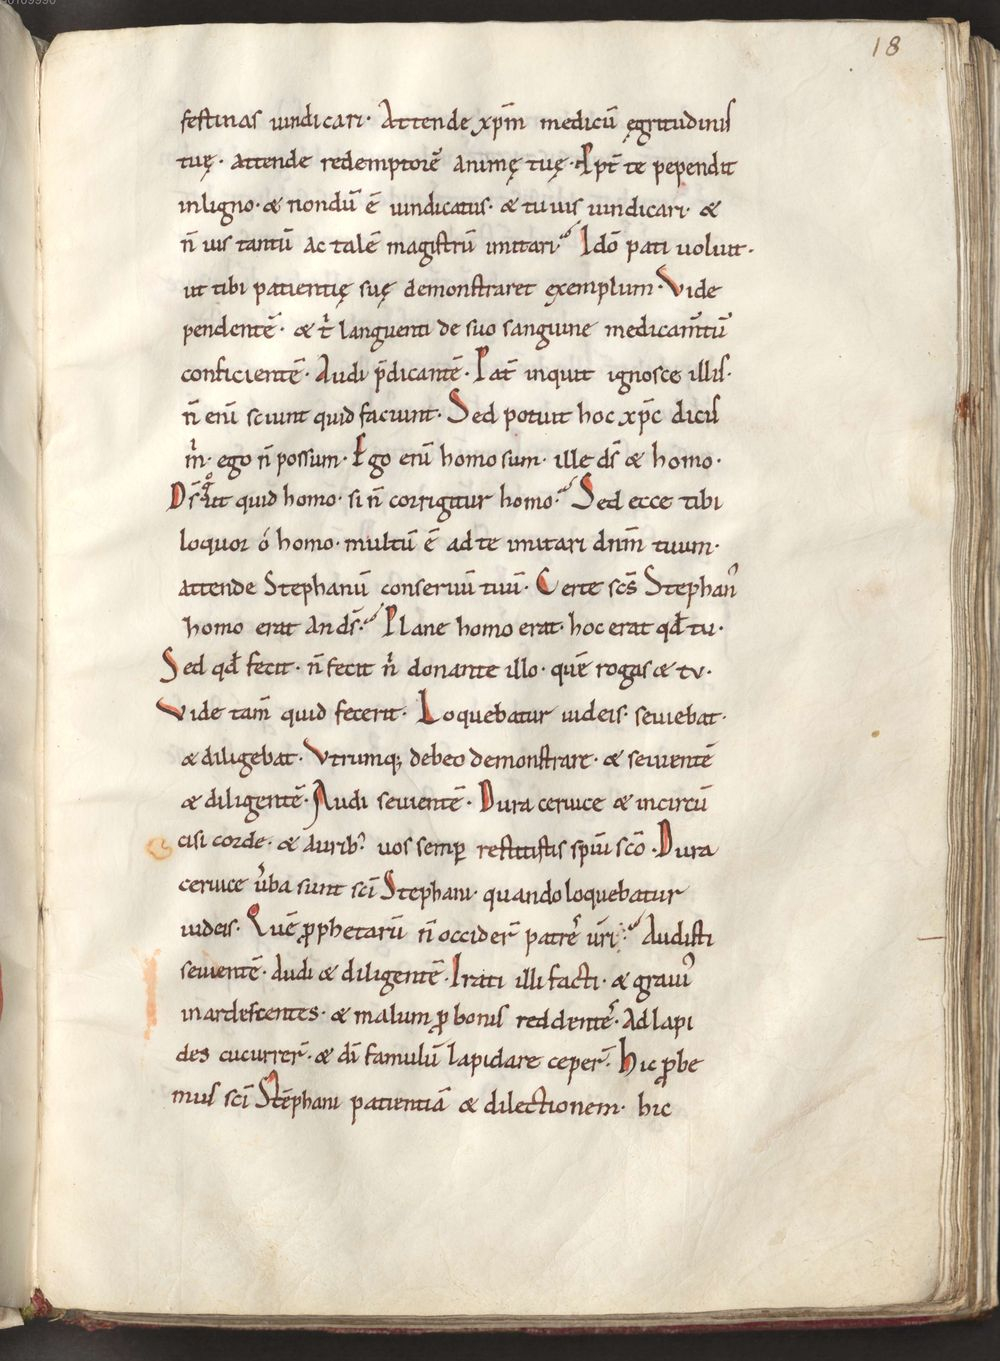 18
festinas uindicari· Attende xp̄m medicū ęgritudinis
tuę· attende redemptorē animę tuę· Ppt̄ te pependit
inligno· & nondū ē uindicatus· & tu uis uindicari· &
n̄ uis tantū ac talē magistrū imitari· Idō pati uoluit·
ut tibi patientię suę demonstraret exemplum· Vide
pendentē· & t̄ languenti de suo sanguine medicam̄tū
conficientē· Audi p̄dicantē· Pat̄ inquit ignosce illis·
n̄ enī sciunt quid faciunt· Sed potuit hoc xp̄c dicis
m̄· ego n̄ possum· Ego enī homo sum· ille ds̄ & homo·
Ds̄ ut quid homo· si n̄ corrigitur homo· Sed ecce tibi
loquor ó homo· multū ē ad te imitari dn̄m tuum·
attende Stephanū conseruū tuū· Certe sc̄s Stephan᾽
homo erat an ds̄· Plane homo erat· hoc erat qd̄ tu·
Sed qd̄ fecit· n̄ fecit n̄ donante illo· quē rogas & tu·
Vide tam̄ quid fecerit· Loquebatur iudeis· seuiebat·
& diligebat· Vtrumq; debeo demonstrare· & seuientē
& diligentē· Audi seuientē· Dura ceruice & incircū
cisi corde· & aurib᾽ uos semp̱ restitistis spiū sc̄o· Dura
ceruice ūba sunt sc̄i Stephani· quando loquebatur
iudeis· Quē ꝓphetarū n̄ occider̄ patrē ūri· Audisti
seuientē· Audi & diligentē· Irati illi facti· & grauiᷣ
inardescentes· & malum ꝓ bonis reddentē· Ad lapi
des cucurrer̄· & dī famulū lapidare ceper̄· Hic ꝓbe
mus sc̄i Stēphani patientiā & dilectionem· hic